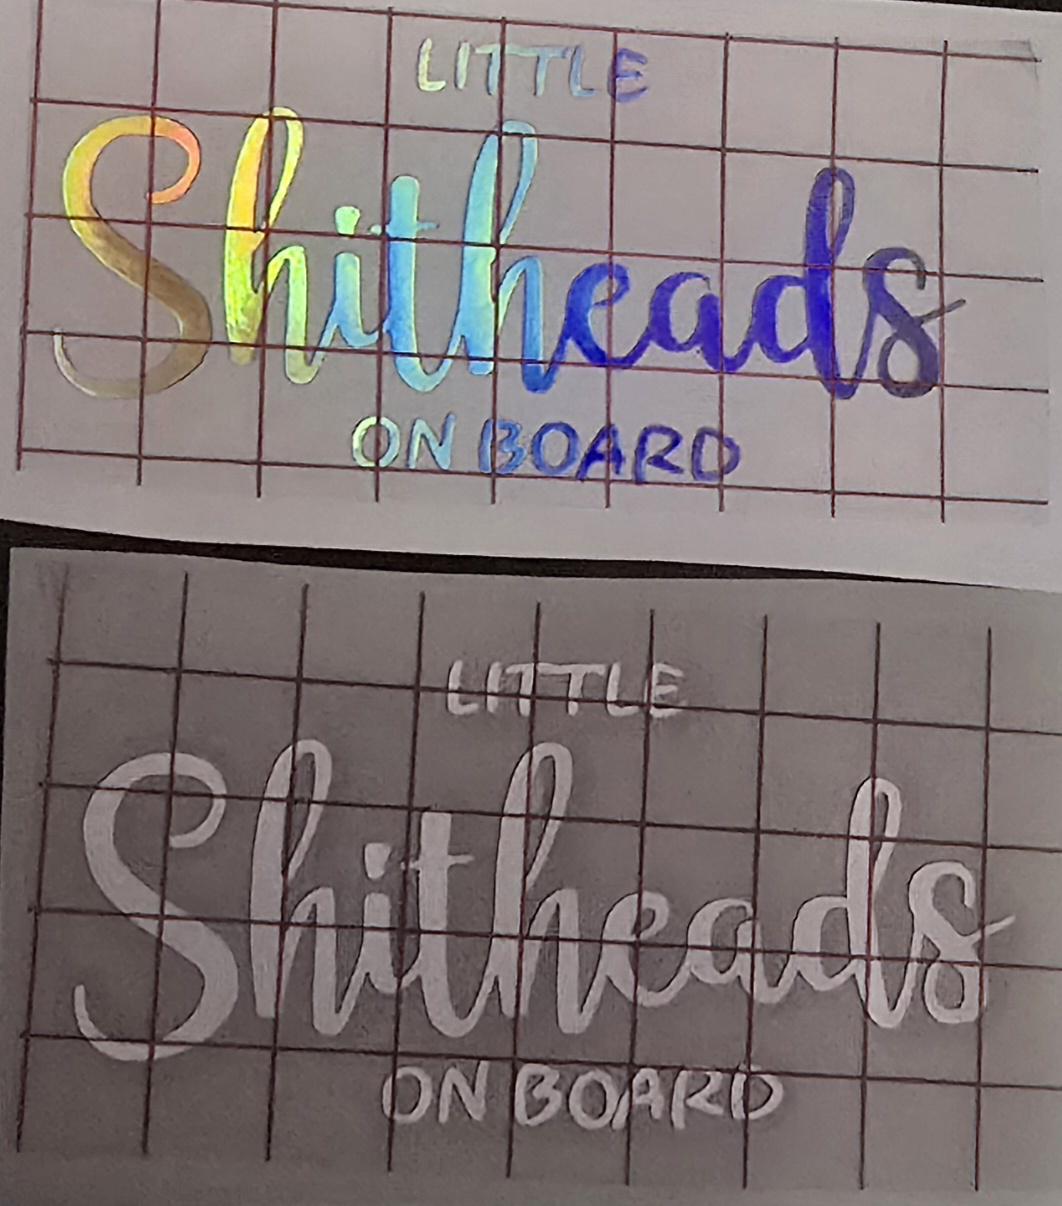 LITTLE
Shitheads
ON BOARD
LITTLE
Shitheads
ON BOARD